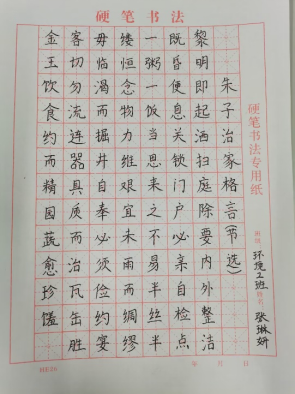 硬笔书法
朱子治家格言(节选)
黎明即起洒扫庭除要内外整洁
既昏便息关锁门户必亲自检点
一粥一饭当思来之不易半丝半
缕恒念物力维艰宜未雨而绸缪
毋临渴而掘井自奉必须俭约宴
客切勿流连器具质而洁瓦缶胜
金玉饮食约而精园蔬愈珍馐
硬笔书法专用纸
班级 环境2班 姓名 张琳妍
年 月 日